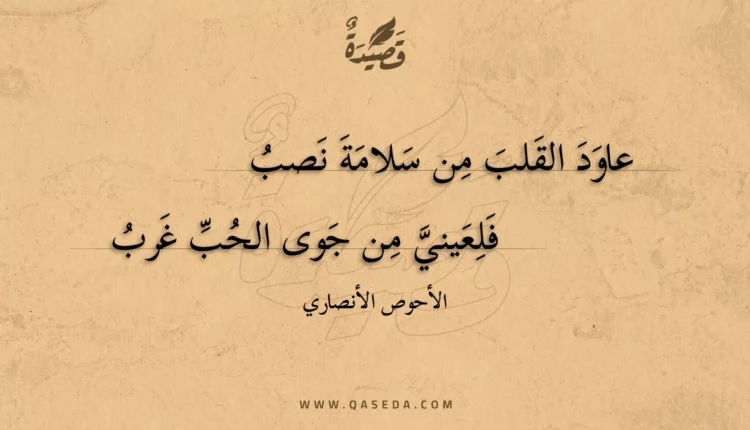 قَصِيدَةٌ
عاوَدَ القَلبَ مِن سَلامَةَ نَصبُ
فَلِعَينيَّ مِن جَوى الحُبِّ غَربُ
الأحوص الأنصاري
WWW.QASEDA.COM